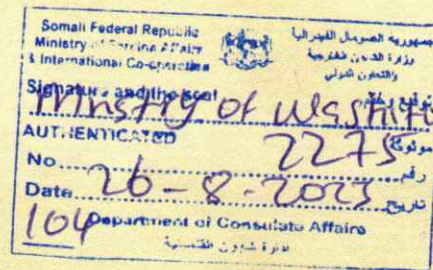 Somali Federal Republic
Ministry of Foreign Affairs
& International Co-operation
جمهورية الصومال الفيدرالية
وزارة الشئون الخارجية
والتعاون الدولي
Signature and the seal
Ministry of
AUTHENTICATED
No 2275 رقم
Date 26-8-2023 تاريخ
104 Department of Consulate Affairs
إدارة شئون القنصلية